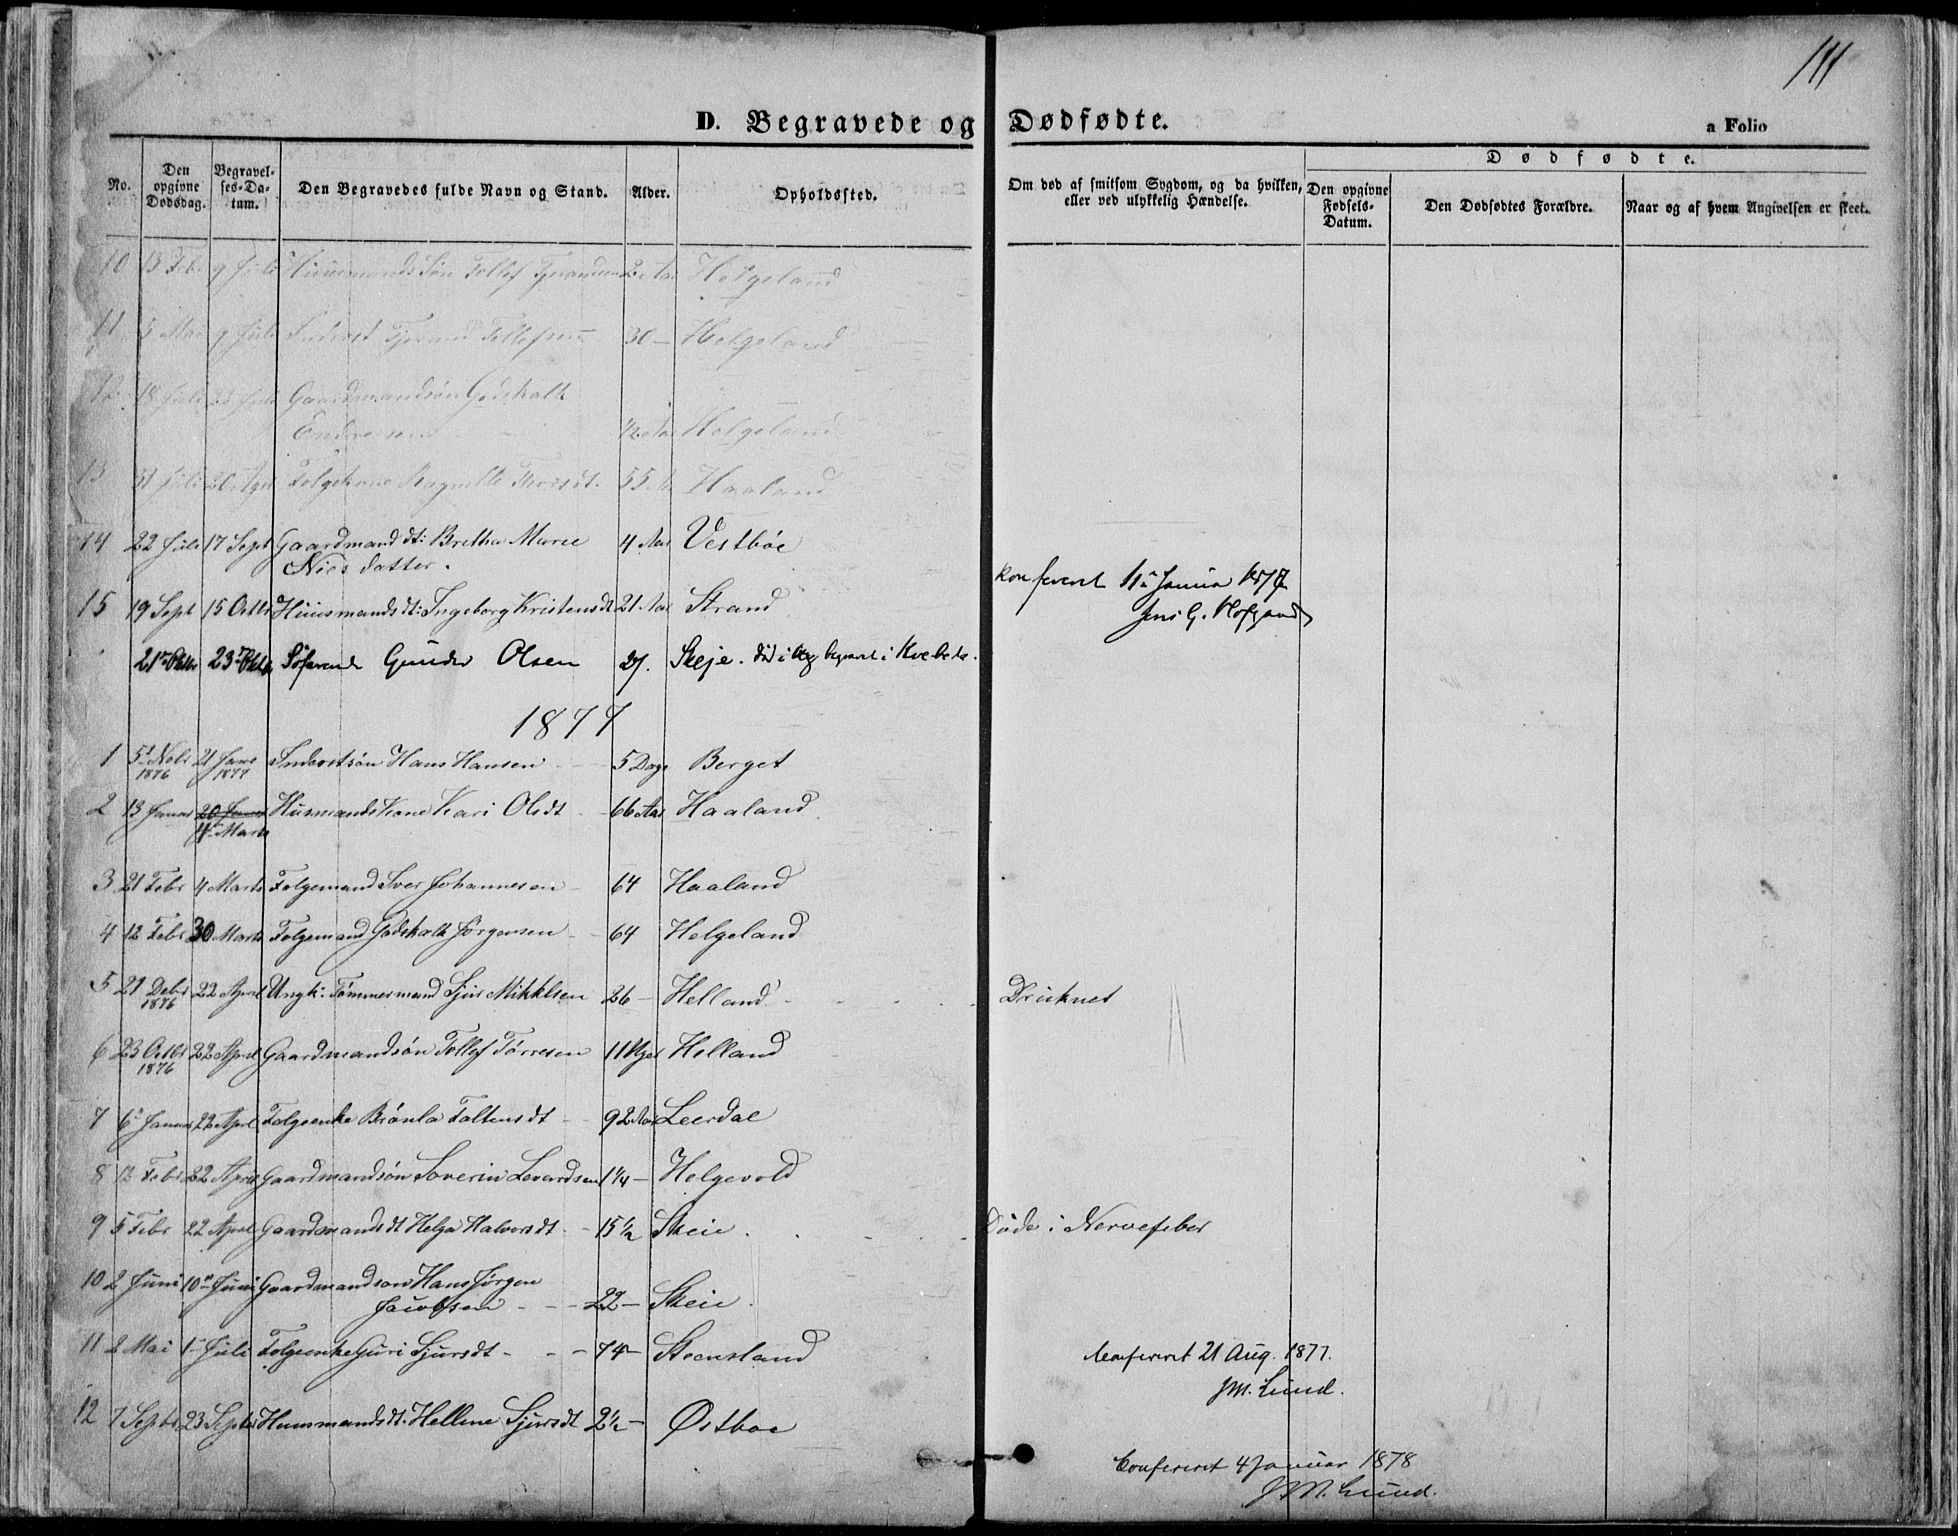 111
D. Begravede og Dødfødte.
a Folio
No.
Den opgivne Dødsdag.
Begravelses-Datum.
Den Begravedes fulde Navn og Stand.
Alder.
Opholdssted.
Om død af smitsom Sygdom, og da hvilken, eller ved ulykkelig Hændelse.
Dødfødte.
Den opgivne Fødsels-Datum.
Den Dødfødtes Forældre.
Naar og af hvem Angivelsen er skeet.
10 13 Febr 9 Juli Huusmands Søn Tollef 2 Aar Helgeland
11 5 Mai 9 Juli Inderst Tollefsen 30 — Helgeland
12 18 Juli 23 Juli Gaardmandsøn Godskalk
Endresen ½ Aar Helgeland
13 31 Juli 20 Agst Folgekone 55 A Haaland
14 22 Juli 17 Sept Gaardmand dt: Bretha Marie 4 Aar Vestbøe
Niels datter.
15 19 Sept 15 Octbr Huusmands dt: Ingeborg Kristensdt 21 Aar Strand
konfereret 11 Januar 1877
Jens G.
21 Oktbr 23 Oktbr Søfarende Gunder Olsen 27. Skeje. død i begravet i
1877
1 5 Nobr 1876 21 Janr 1877 Inderstsøn Hans Hansen 5 Dage Berget
2 13 Januar 20 Januar 11 Marts HusmandsKone Kari Olsdt 66 Aar Haaland
3 21 Febr 4 Marts Folgemand Iver Johannesen 64 Haaland
4 12 Febr 30 Marts Folgemand Godskalk Jørgensen 64 Helgeland
5 27 Debr 1876 22 April Ungk: Tømmermand Sjur Mikklsen 26 — Helland Druknet
6 23 Octbr 1876 22 April Gaardmandsøn Tollef Tørresen 11 Uger Helland
7 6 Januar 22 April Folgeenke Brønla Foltensdt 92 Aar Leerdal
8 13 Febr 22 April Gaardmandsøn Soverin Levardsen 1¼ — Helgevold
9 5 Febr 22 April Gaardmandsdt Helga Halvorsdt 15½ Skeie. Døde i Nervefeber
10 2 Juni 10 Juni Gaardmandsøn Hans Jørgen
Jacobsen 22 — Skeie.
11 2 Mai 1 Juli Folgeenke Guri Sjursdt 74 — Steensland
Confereret 21 Aug. 1877.
JM. Lund.
12 7 Septbr 23 Septbr Huusmandsdt: Hellene Sjursdt 2½ — Østboe
Confereret 4 Januar 1878
JM. Lund.